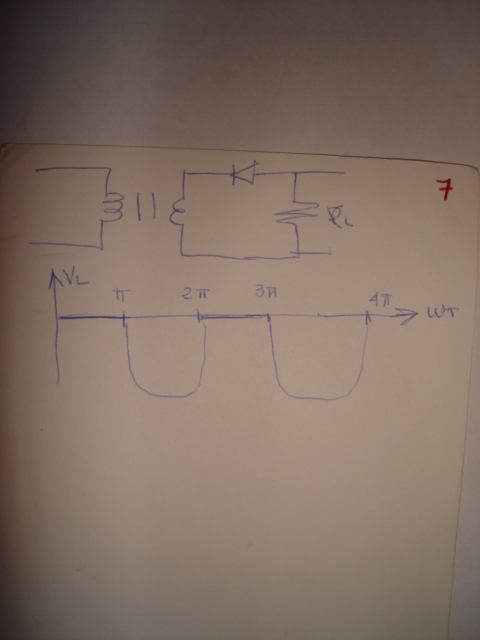 7
R_L
V_L
π 2π 3π 4π
ωt